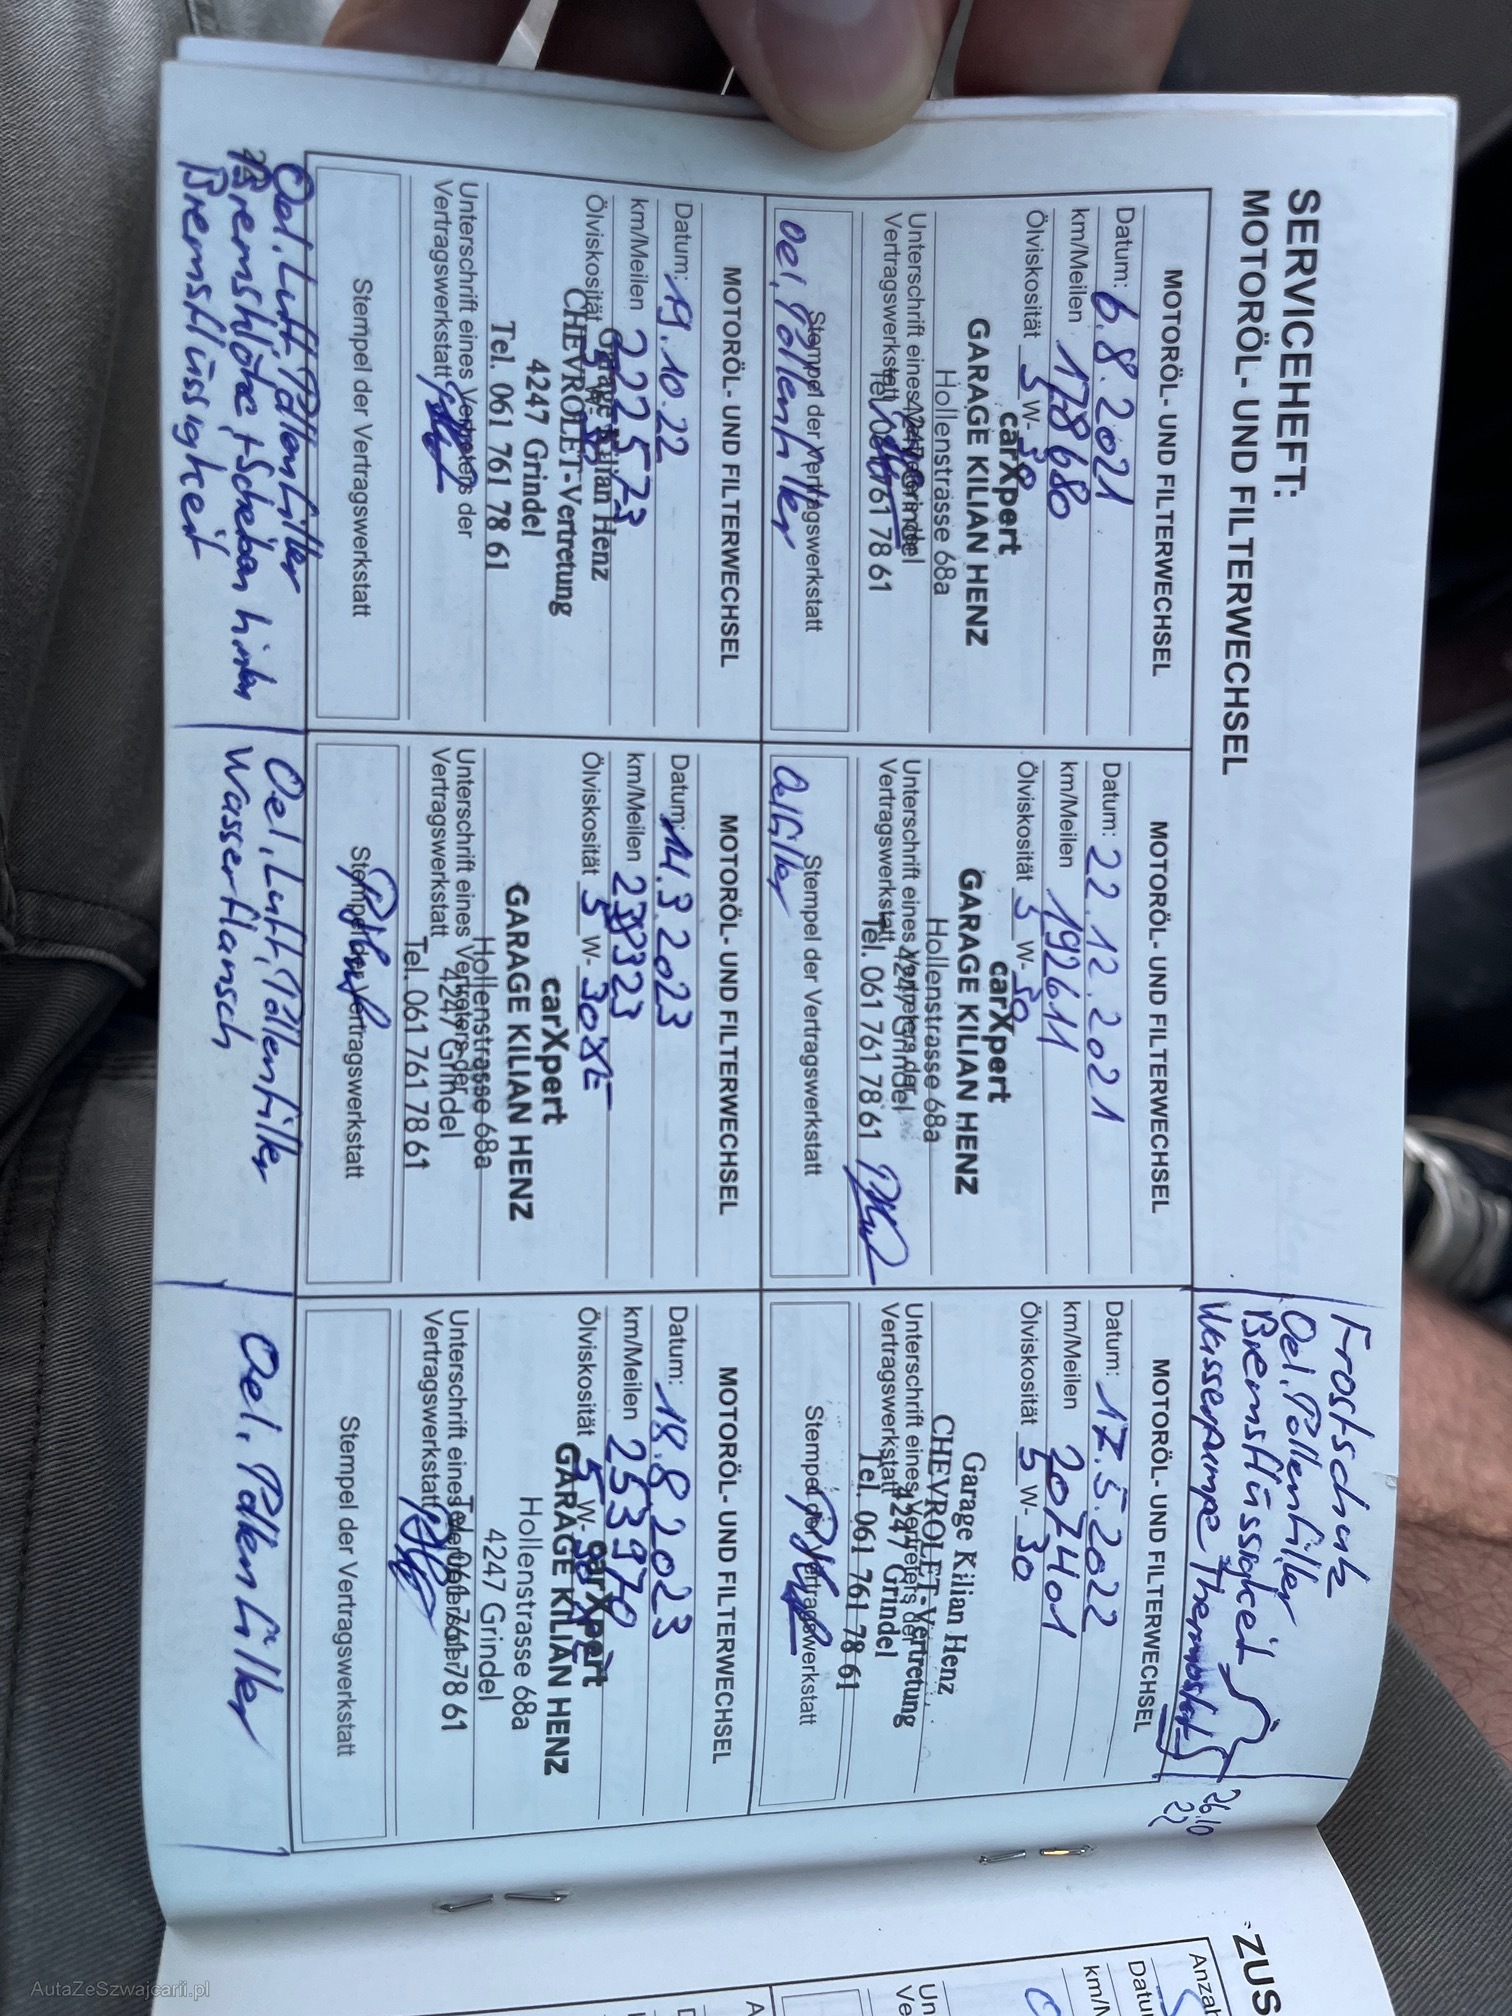 SERVICEHEFT:
MOTORÖL- UND FILTERWECHSEL
Frostschutz
Oel, Pollenfilter
Bremsflüssigkeit
Wasserpumpe Thermostat
26.10
22
MOTORÖL- UND FILTERWECHSEL
Datum: 6.8.2021
km/Meilen 178680
Ölviskosität 5 W- 30
carXpert
GARAGE KILIAN HENZ
Hollenstrasse 68a
Unterschrift eines Vertreters der
4247 Grindel
Vertragswerkstatt
Tel. 061 761 78 61
Stempel der Vertragswerkstatt
Oel, Pollenfilter
MOTORÖL- UND FILTERWECHSEL
Datum: 22.12.2021
km/Meilen 192611
Ölviskosität 5 W- 30
carXpert
GARAGE KILIAN HENZ
Hollenstrasse 68a
Unterschrift eines Vertreters der
4247 Grindel
Vertragswerkstatt
Tel. 061 761 78 61
Stempel der Vertragswerkstatt
Oelfilter
MOTORÖL- UND FILTERWECHSEL
Datum: 17.5.2022
km/Meilen 207401
Ölviskosität 5 W- 30
Garage Kilian Henz
CHEVROLET-Vertretung
Unterschrift eines Vertreters der
4247 Grindel
Vertragswerkstatt
Tel. 061 761 78 61
Stempel der Vertragswerkstatt
MOTORÖL- UND FILTERWECHSEL
Datum: 19.10.22
km/Meilen 222573
Garage Kilian Henz
Ölviskosität 5 W- 30
CHEVROLET-Vertretung
4247 Grindel
Tel. 061 761 78 61
Unterschrift eines Vertreters der
Vertragswerkstatt
Stempel der Vertragswerkstatt
Oel, Luft, Pollenfilter
Bremsklötze + Scheiben hinten
Bremsflüssigkeit
MOTORÖL- UND FILTERWECHSEL
Datum: 14.3.2023
km/Meilen 238323
Ölviskosität 5 W- 30
carXpert
GARAGE KILIAN HENZ
Hollenstrasse 68a
Unterschrift eines Vertreters der
4247 Grindel
Vertragswerkstatt
Tel. 061 761 78 61
Stempel der Vertragswerkstatt
Oel, Luft, Pollenfilter
Wasserflansch
MOTORÖL- UND FILTERWECHSEL
Datum: 18.8.2023
km/Meilen 253970
Ölviskosität 5 W- 30
carXpert
GARAGE KILIAN HENZ
Hollenstrasse 68a
4247 Grindel
Unterschrift eines Vertreters der
Tel. 061 761 78 61
Vertragswerkstatt
Stempel der Vertragswerkstatt
Oel, Pollenfilter
ZUS
Anzah
Datu
km/M
Un
Ve
A
D
AutaZeSzwajcarii.pl